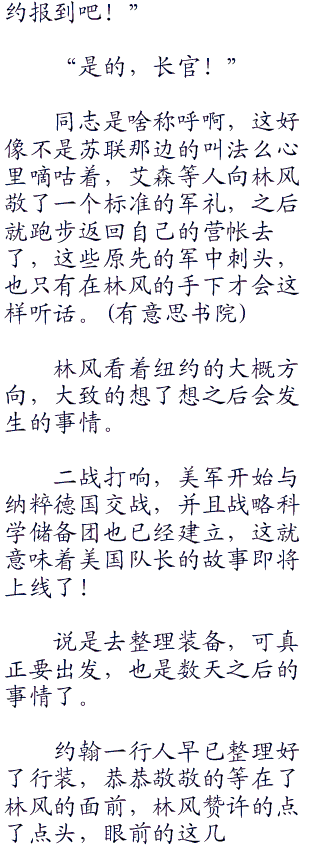 约报到吧！”
“是的，长官！”
同志是啥称呼啊，这好
像不是苏联那边的叫法么心
里嘀咕着，艾森等人向林风
敬了一个标准的军礼，之后
就跑步返回自己的营帐去
了，这些原先的军中刺头，
也只有在林风的手下才会这
样听话。(有意思书院)
林风看着纽约的大概方
向，大致的想了想之后会发
生的事情。
二战打响，美军开始与
纳粹德国交战，并且战略科
学储备团也已经建立，这就
意味着美国队长的故事即将
上线了！
说是去整理装备，可真
正要出发，也是数天之后的
事情了。
约翰一行人早已整理好
了行装，恭恭敬敬的等在了
林风的面前，林风赞许的点
了点头，眼前的这几